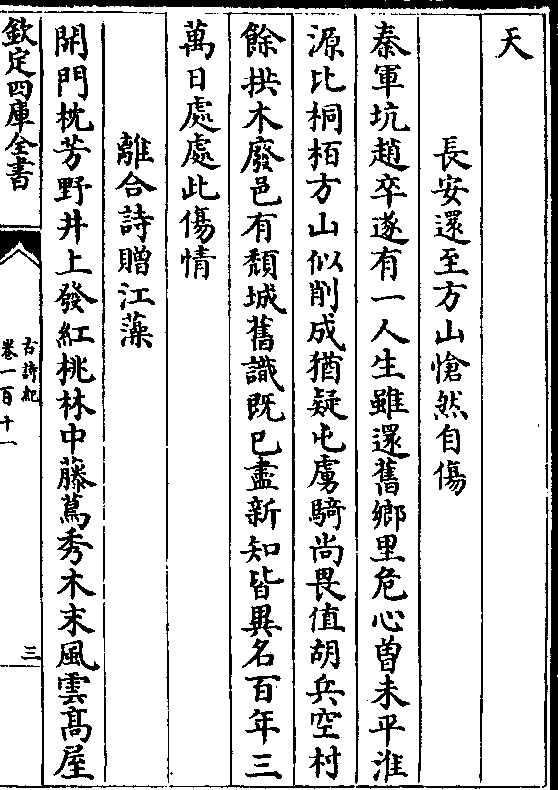 天
長安還至方山愴然自傷
秦軍坑趙卒遂有一人生雖還舊鄉里危心曽未平淮
源比桐栢方山似削成猶疑屯虜騎尚畏值胡兵空村
餘拱木廢邑有頽城舊識既已盡新知皆異名百年三
萬日處處此傷情
離合詩贈江藻
開門枕芳野井上發紅桃林中藤蔦秀木末風雲髙屋
欽定四庫全書
古詩紀
卷一百十一
三